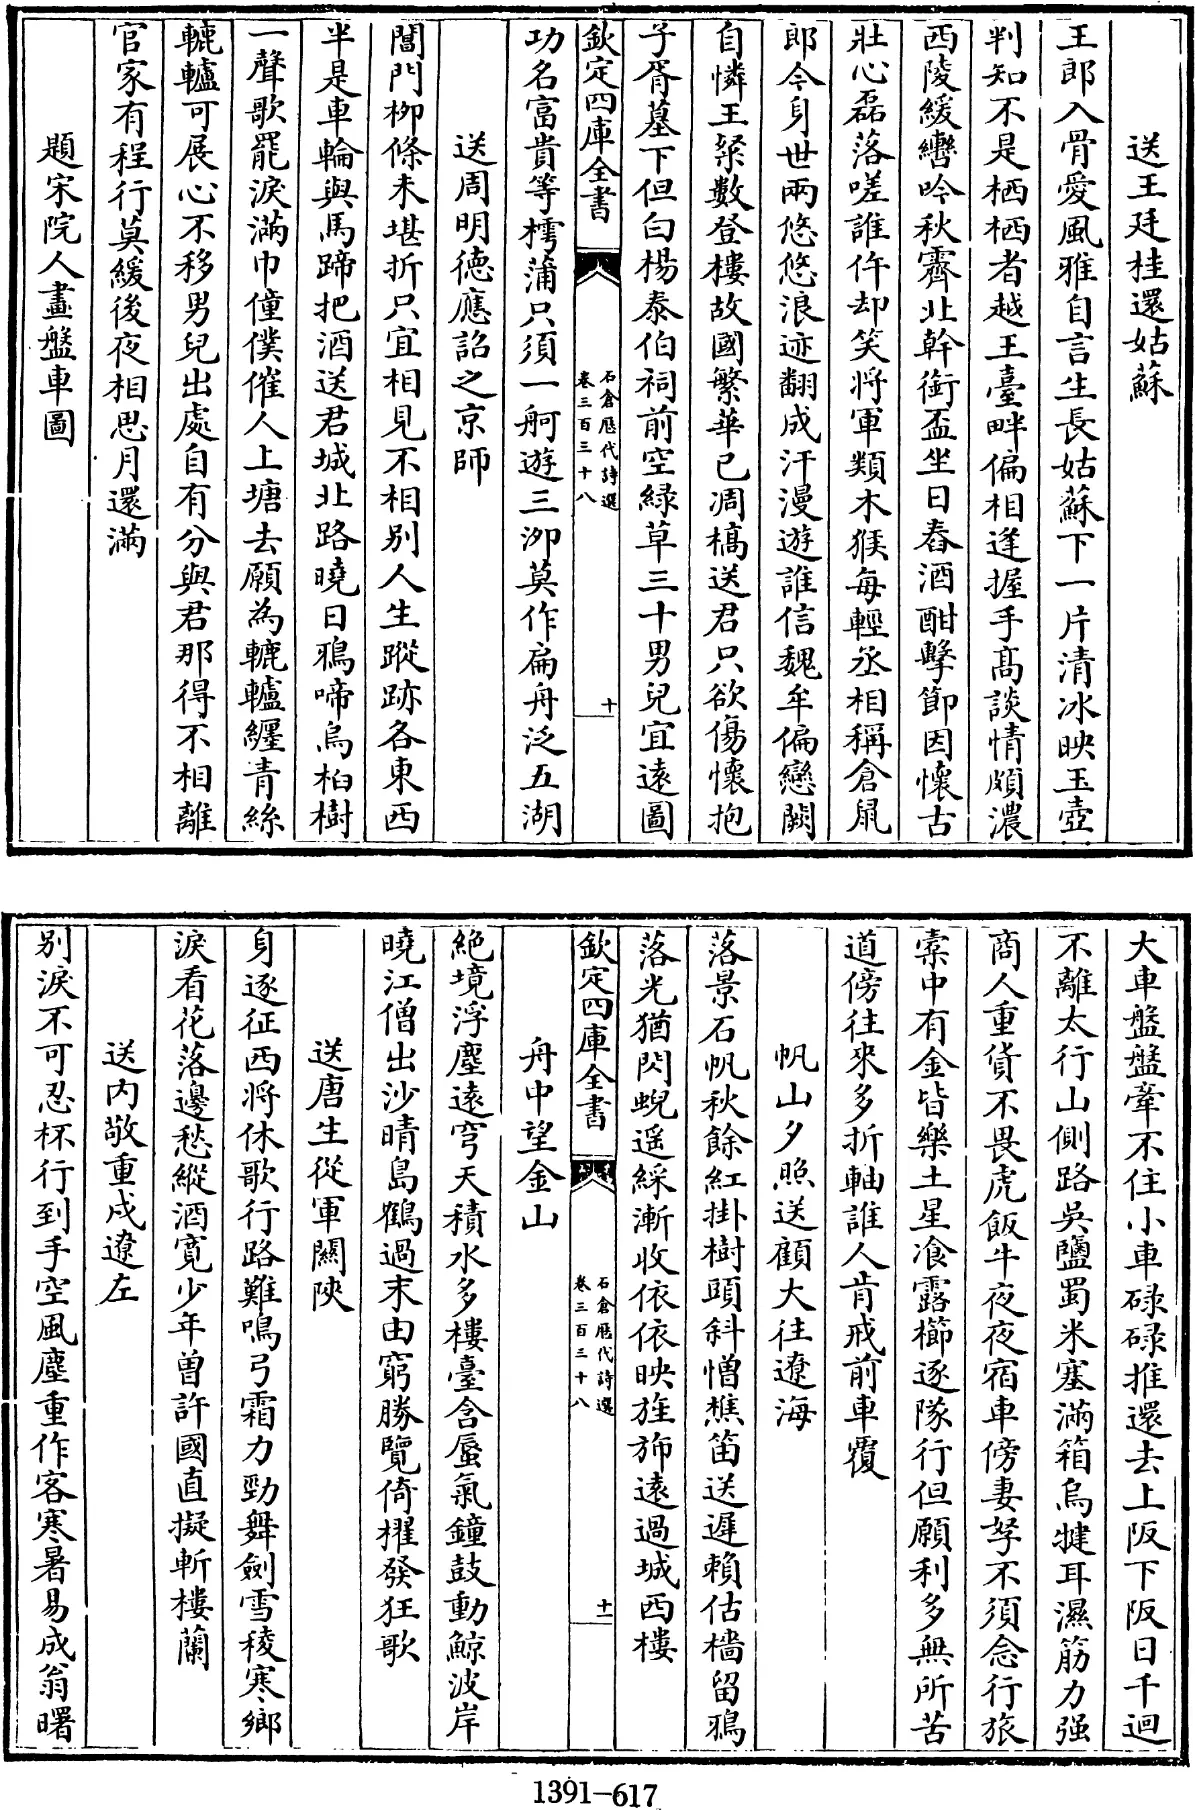 送王廷桂還姑蘇
王郎入骨愛風雅自言生長姑蘇下一片清冰映玉壺
判知不是栖栖者越王臺畔偏相逢握手髙談情頗濃
西陵緩轡吟秋霽北幹銜盃坐日舂酒酣擊節因懷古
壯心磊落嗟誰仵却笑將軍類木猴每輕丞相稱倉鼠
郎今身世兩悠悠浪迹翻成汗漫遊誰信魏牟偏戀闕
自憐王粲數登樓故國繁華已凋槁送君只欲傷懷抱
子胥墓下但白楊泰伯祠前空緑草三十男兒宜遠圖
欽定四庫全書
石倉歷代詩選
卷三百三十八
十
功名富貴等樗蒲只須一舸遊三泖莫作扁舟泛五湖
送周明德應詔之京師
閶門栁條未堪折只宜相見不相别人生蹤跡各東西
半是車輪與馬蹄把酒送君城北路曉日鴉啼烏桕樹
一聲歌罷淚滿巾僮僕催人上塘去願為轆轤纒青絲
轆轤可展心不移男兒出處自有分與君那得不相離
官家有程行莫緩後夜相思月還滿
題宋院人畫盤車圖
大車盤盤牽不住小車碌碌推還去上阪下阪日千迴
不離太行山側路吳鹽蜀米塞滿箱烏犍耳濕筋力强
商人重貨不畏虎飯牛夜夜宿車傍妻孥不須念行旅
橐中有金皆樂土星飡露櫛逐隊行但願利多無所苦
道傍往來多折軸誰人肯戒前車覆
帆山夕照送顧大往遼海
落景石帆秋餘紅掛樹頭斜憎樵笛送遲賴估檣留鴉
落光猶閃蜺遥綵漸收依依映旌斾遠過城西樓
欽定四庫全書
石倉歷代詩選
卷三百三十八
十一
舟中望金山
絶境浮塵遠穹天積水多樓臺含蜃氣鐘鼓動鯨波岸
曉江僧出沙晴島鶴過末由窮勝覽倚櫂發狂歌
送唐生從軍關陜
身逐征西將休歌行路難鳴弓霜力勁舞劍雪稜寒鄉
淚看花落邊愁縱酒寛少年曽許國直擬斬樓蘭
送内敬重戍遼左
别淚不可忍杯行到手空風塵重作客寒暑易成翁曙
1391-617